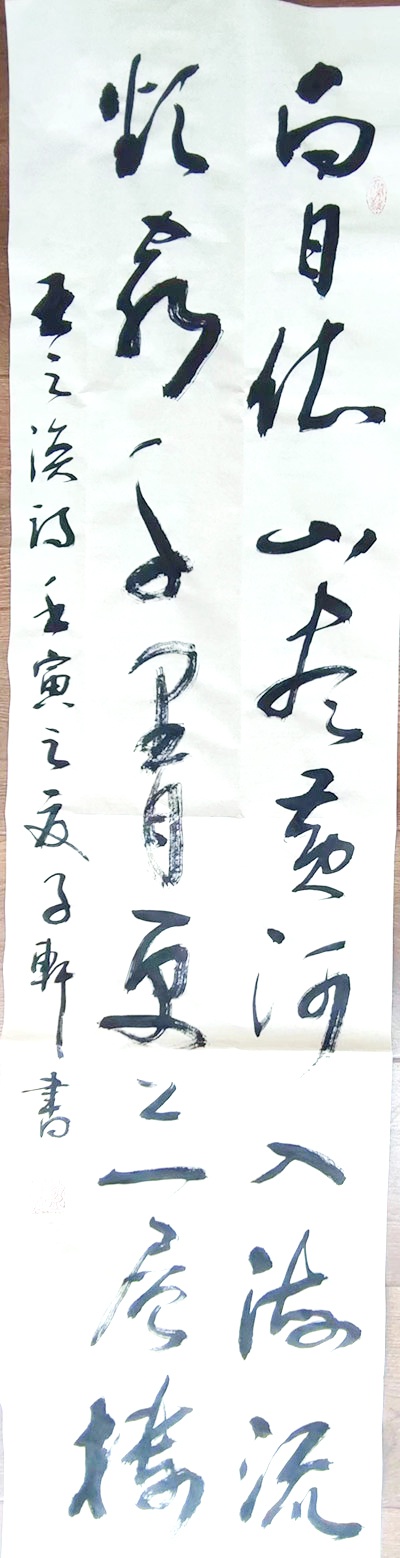 白日依山尽黄河入海流
欲穷千里目更上一层楼
王之涣诗壬寅之夏子軒書